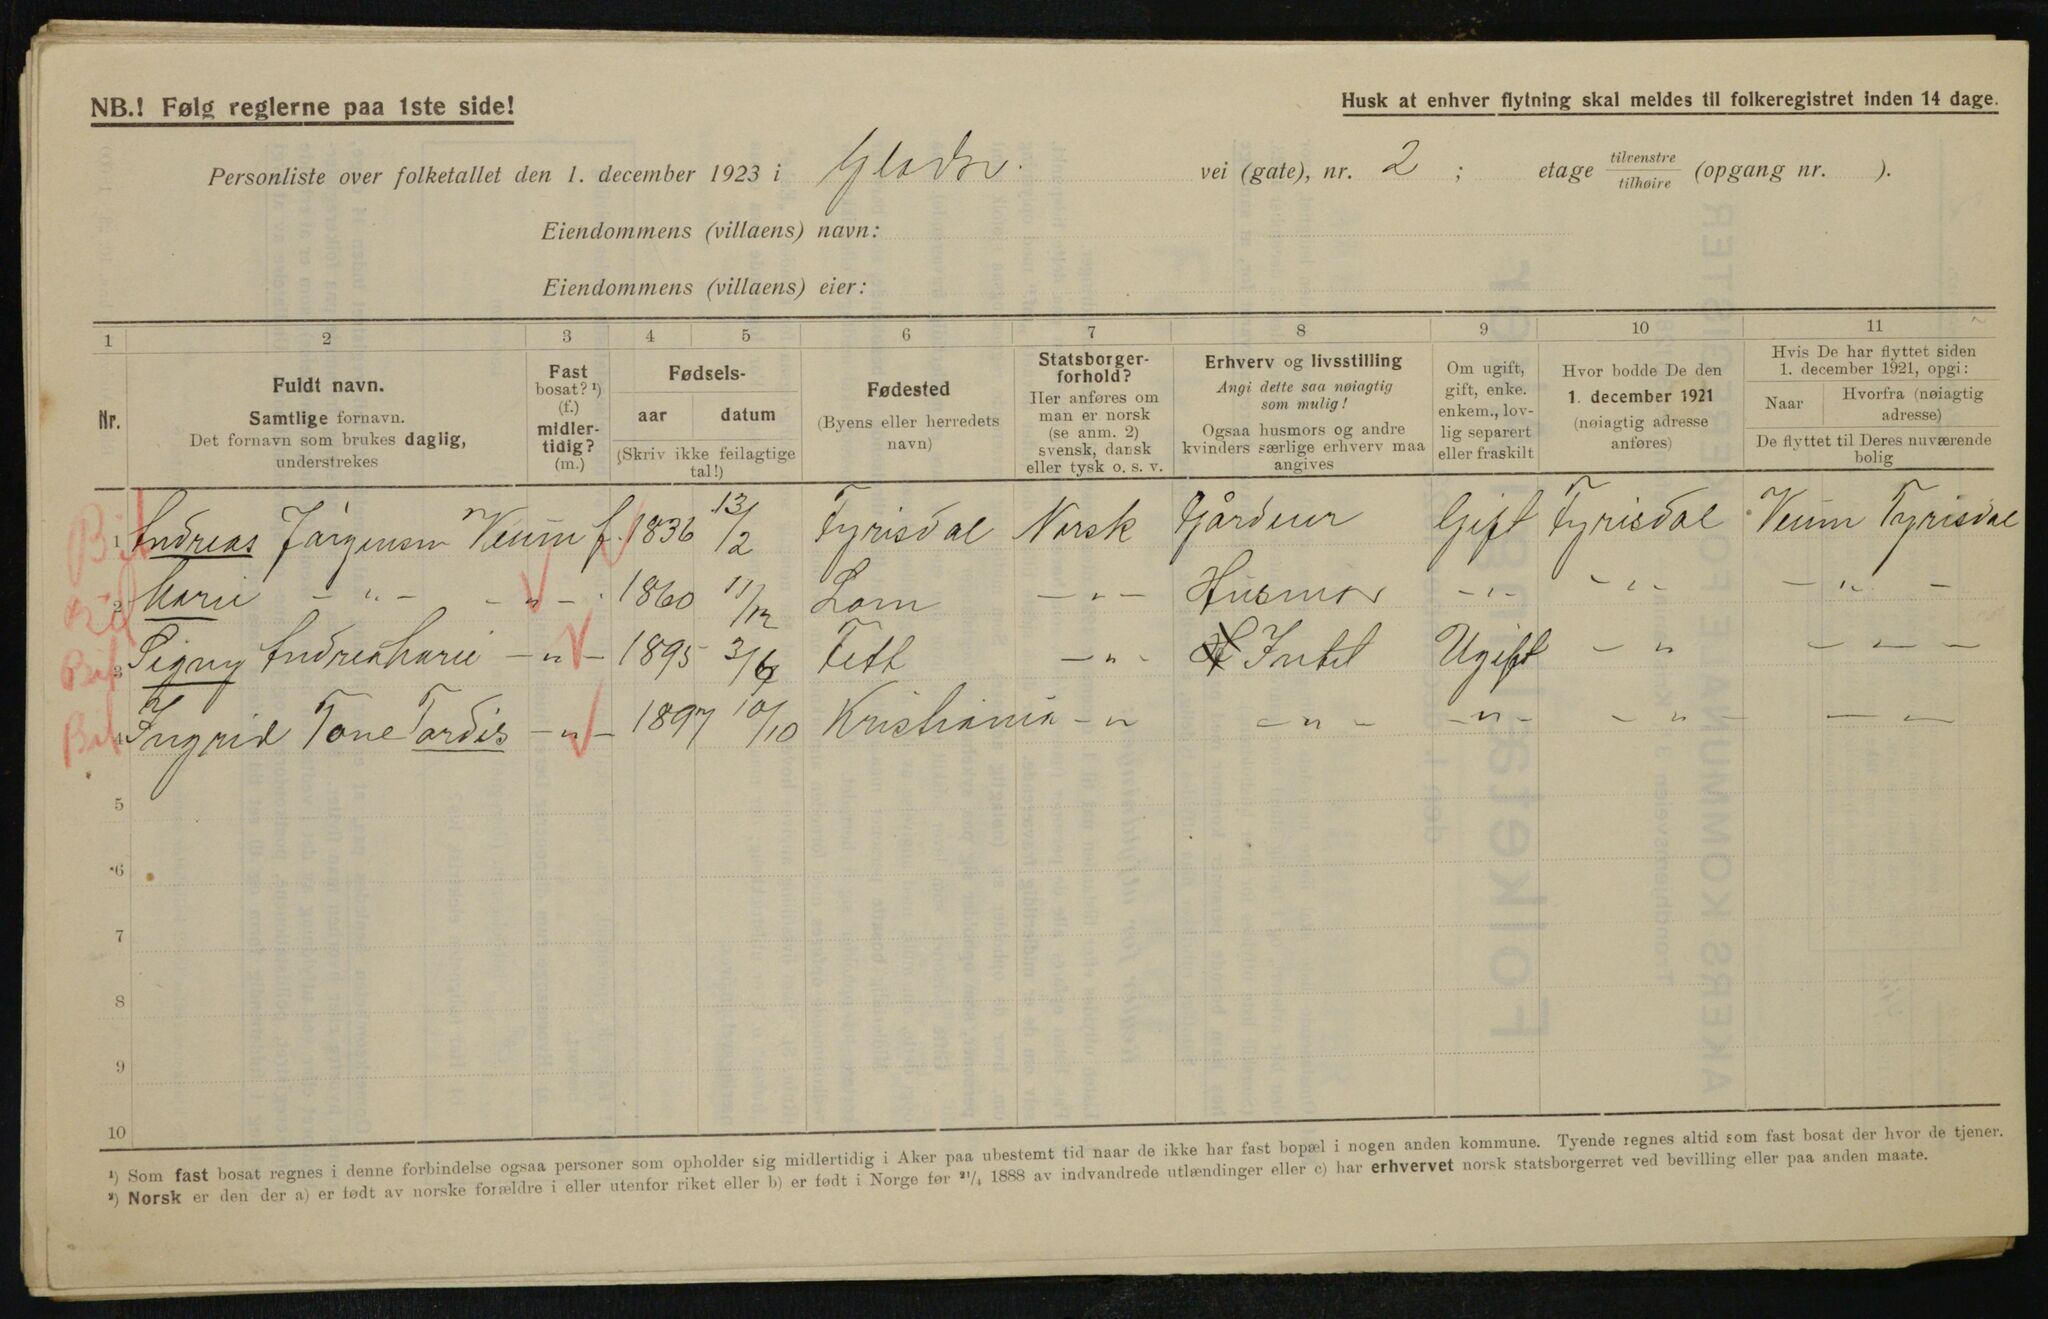 NB.! Følg reglerne paa 1ste side!
Husk at enhver flytning skal meldes til folkeregistret inden 14 dage.
Personliste over folketallet den 1. december 1923 i vei (gate), nr. 2 ; etage tilvenstre/tilhøire (opgang nr. ).
Eiendommens (villaens) navn:
Eiendommens (villaens) eier:
1 2 3 4 5 6 7 8 9 10 11
Nr.
Fuldt navn.
Samtlige fornavn.
Det fornavn som brukes daglig,
understrekes
Fast
bosat? ¹)
(f.)
midler-
tidig?
(m.)
Fødsels-
aar datum
(Skriv ikke feilagtige
tal!)
Fødested
(Byens eller herredets
navn)
Statsborger-
forhold?
Her anføres om
man er norsk
(se anm. 2)
svensk, dansk
eller tysk o. s. v.
Erhverv og livsstilling
Angi dette saa nøiagtig
som mulig!
Ogsaa husmors og andre
kvinders særlige erhverv maa
angives
Om ugift,
gift, enke.
enkem., lov-
lig separert
eller fraskilt
Hvor bodde De den
1. december 1921
(nøiagtig adresse
anføres)
Hvis De har flyttet siden
1. december 1921, opgi:
Naar Hvorfra (nøiagtig
adresse)
De flyttet til Deres nuværende
bolig
1 Andreas Jörgensen Veum f. 1836 13/2 Fyrisdal Norsk Gift Fyrisdal Veum Fyrisdal
2 Marie - " - - " - 1860 11/12 Lom - " - Husmor - " - - " - - " -
3 Signy Andrea Marie - " - 1895 3/6 Fett - " - Intet Ugift - " - - " -
4 Ingrid Tone Tordis - " - 1897 10/10 Kristiania - " - " - - " - - " - - -
5
6
7
8
9
10
¹) Som fast bosat regnes i denne forbindelse ogsaa personer som opholder sig midlertidig i Aker paa ubestemt tid naar de ikke har fast bopæl i nogen anden kommune. Tyende regnes altid som fast bosat der hvor de tjener.
²) Norsk er den der a) er født av norske forældre i eller utenfor riket eller b) er født i Norge før ²¹/₄ 1888 av indvandrede utlændinger eller c) har erhvervet norsk statsborgerret ved bevilling eller paa anden maate.